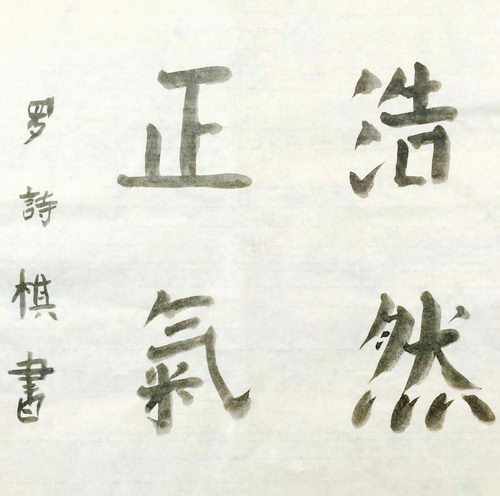 浩然
正氣
罗詩棋書